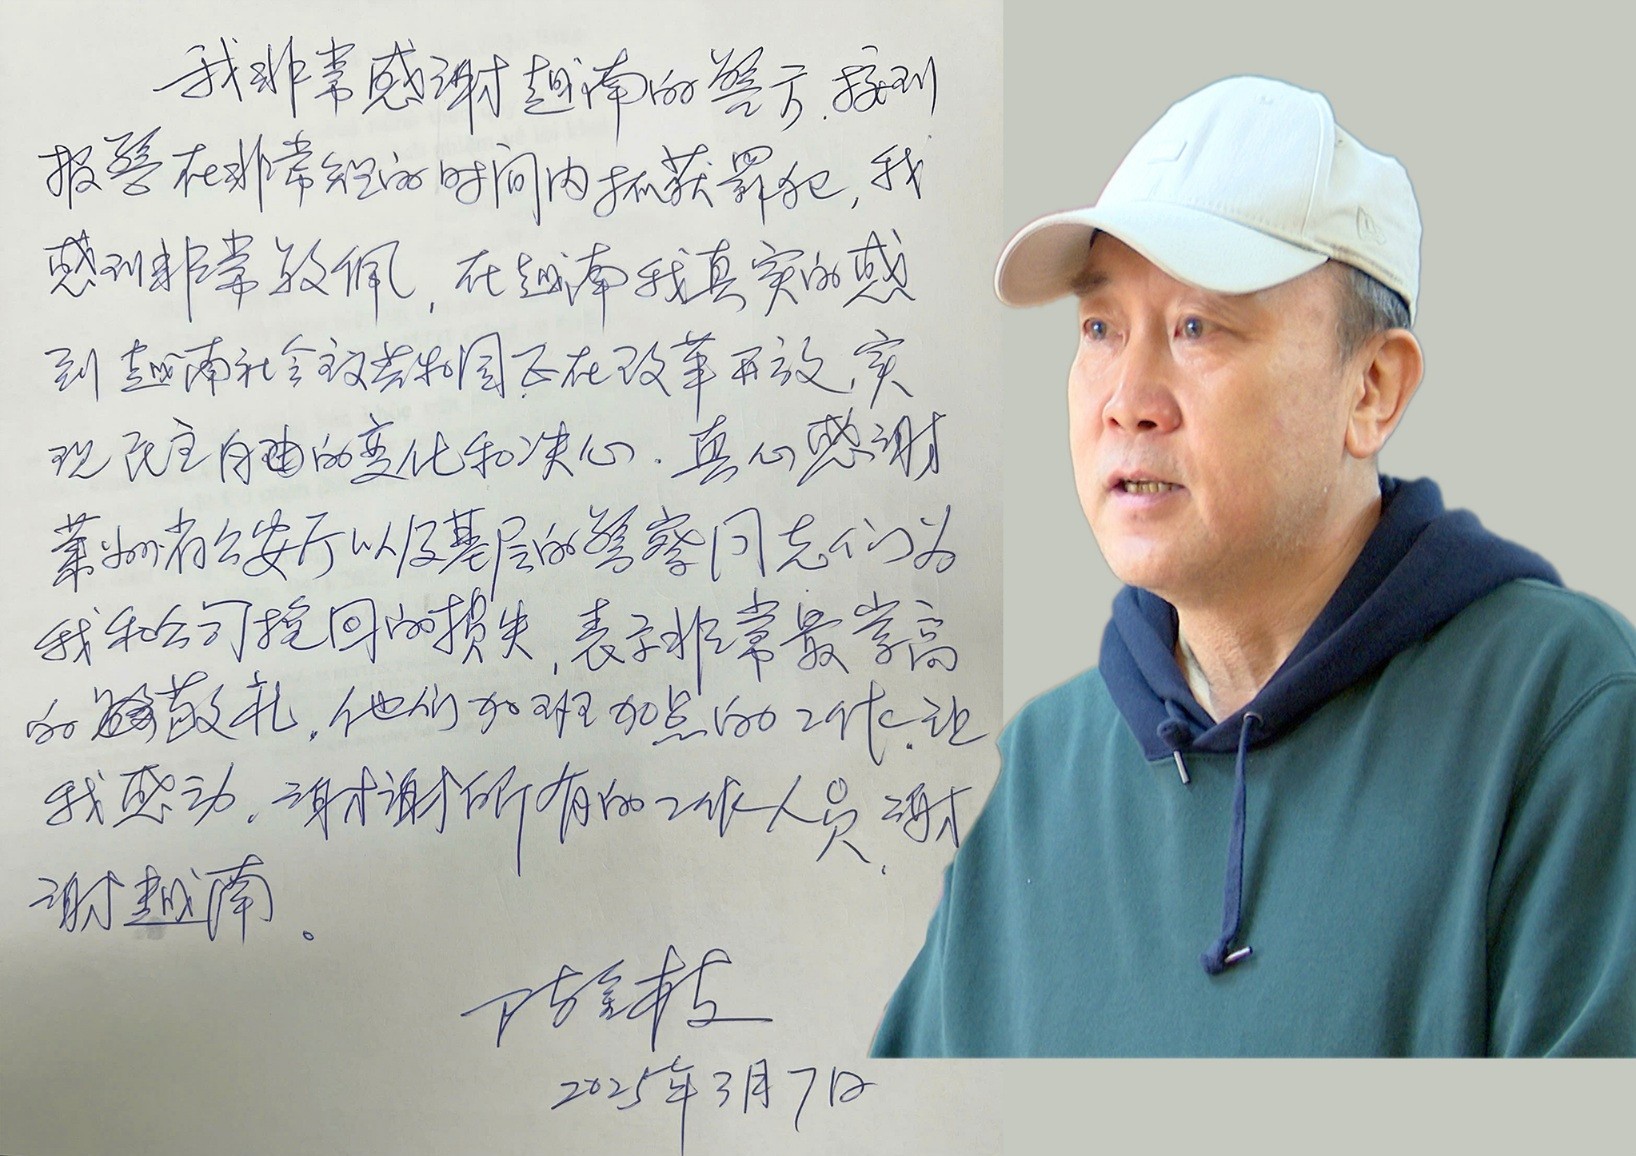 我非常感谢越南的警方.接到
报警在非常短的时间内抓获罪犯,我
感到非常敬佩,在越南我真实的感
到越南社会主义共和国正在改革开放,实
现民主自由的变化和决心.真心感谢
莱州省公安厅以及基层的警察同志们为
我和公司挽回的损失,表示非常最崇高
的敬礼.他们加班加点的工作.让
我感动.谢谢所有的工作人员,谢
谢越南。
2025年3月7日